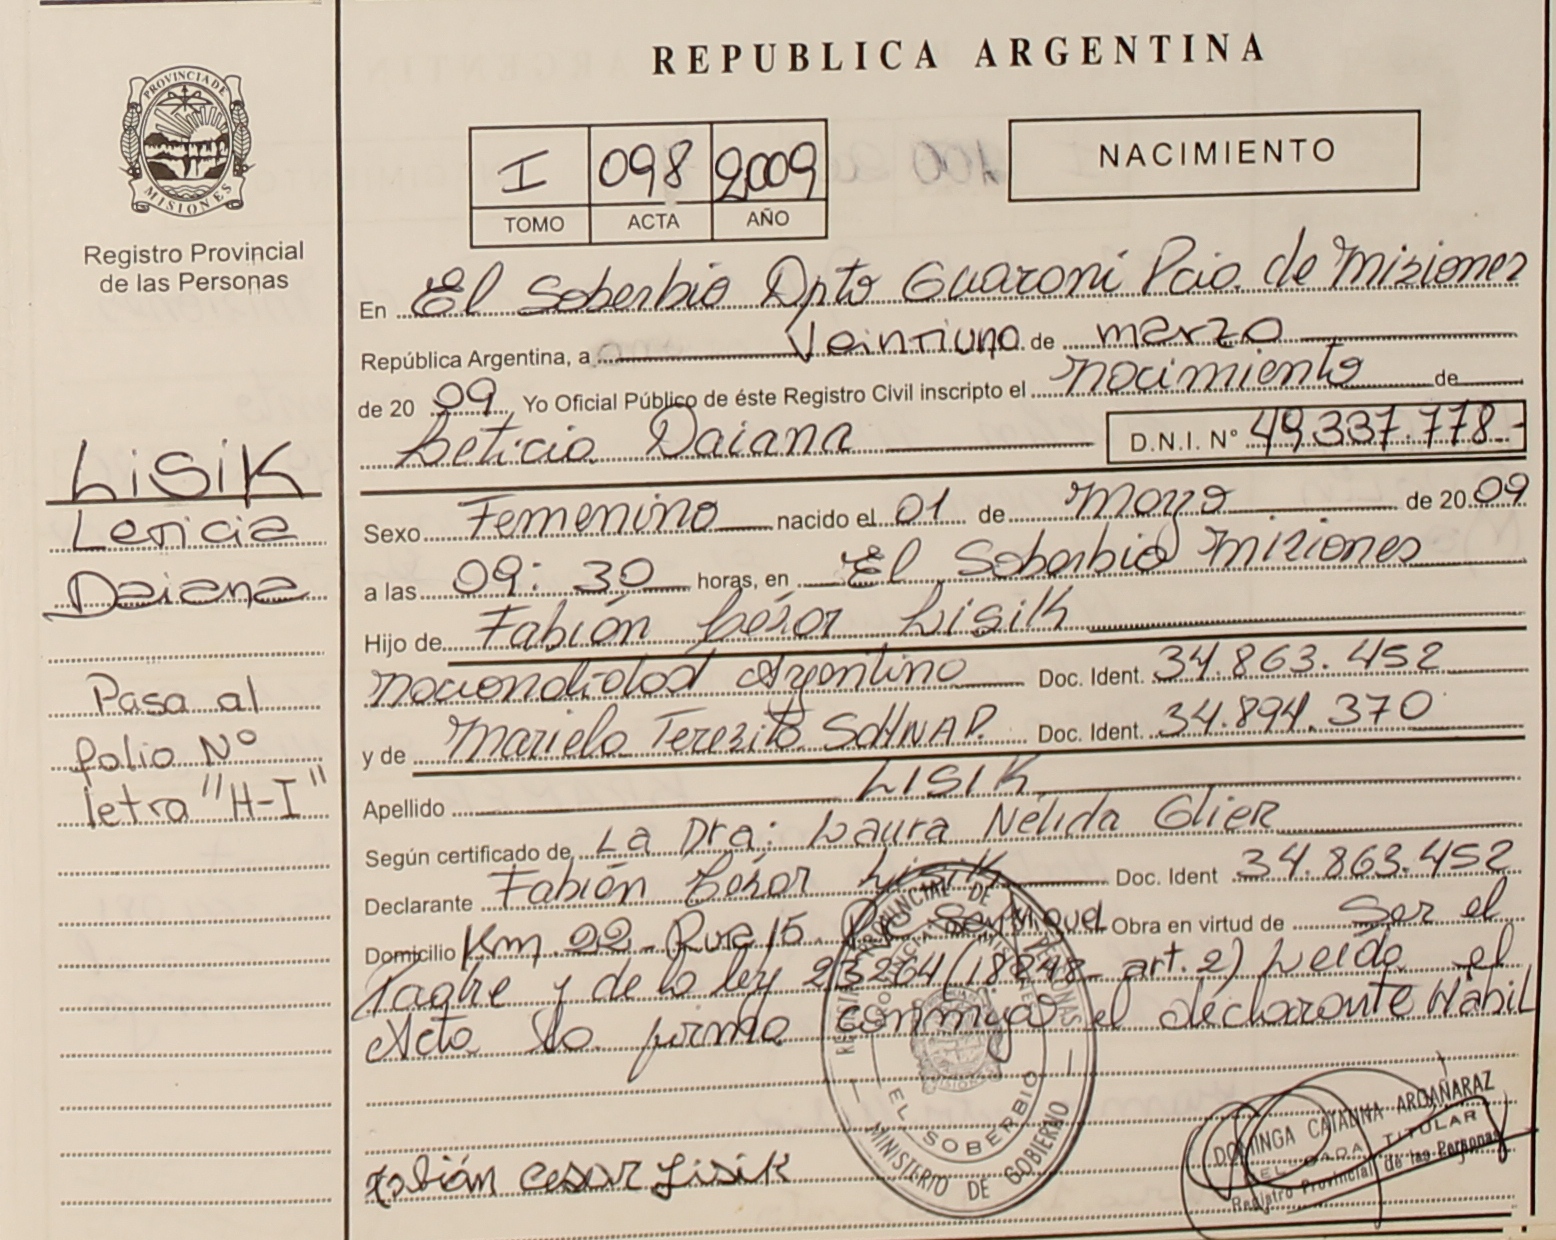 PROVINCIA DE
MISIONES
Registro Provincial
de las Personas
LISIK
Leticia
Daiana
Pasa al
folio Nº
letra "H-I"
REPUBLICA ARGENTINA
I 098 2009
TOMO ACTA AÑO
NACIMIENTO
En El Soberbio Dpto Guaraní Pcia. de Misiones
República Argentina, a Veintiuno de marzo
de 2009, Yo Oficial Público de éste Registro Civil inscripto el nacimiento de
Leticia Daiana D.N.I. N° 49.337.778-
Sexo Femenino nacido el 01 de Mayo de 2009
a las 09:30 horas, en El Soberbio Misiones
Hijo de Fabián César Lisik
nacionalidad Argentino Doc. Ident. 34.863.452
y de Mariela Terezita SCHNAP. Doc. Ident. 34.894.370
Apellido LISIK
Según certificado de La Dra: Laura Nélida Glier
Declarante Fabián César Lisik Doc. Ident 34.863.452
Domicilio Km. 22 - Ruta 15. San Miguel Obra en virtud de Ser el
Padre y de la ley 23264 (18248 - art. 2) Leída el
Acta la firma conmigo el declarante Habil
REGISTRO PROVINCIAL DE LAS PERSONAS
PROVINCIA DE MISIONES
EL SOBERBIO
MINISTERIO DE GOBIERNO
DOMINGA CATALINA ARGAÑARAZ
DELEGADA TITULAR
Registro Provincial de las Personas
Fabián Cesar Lisik